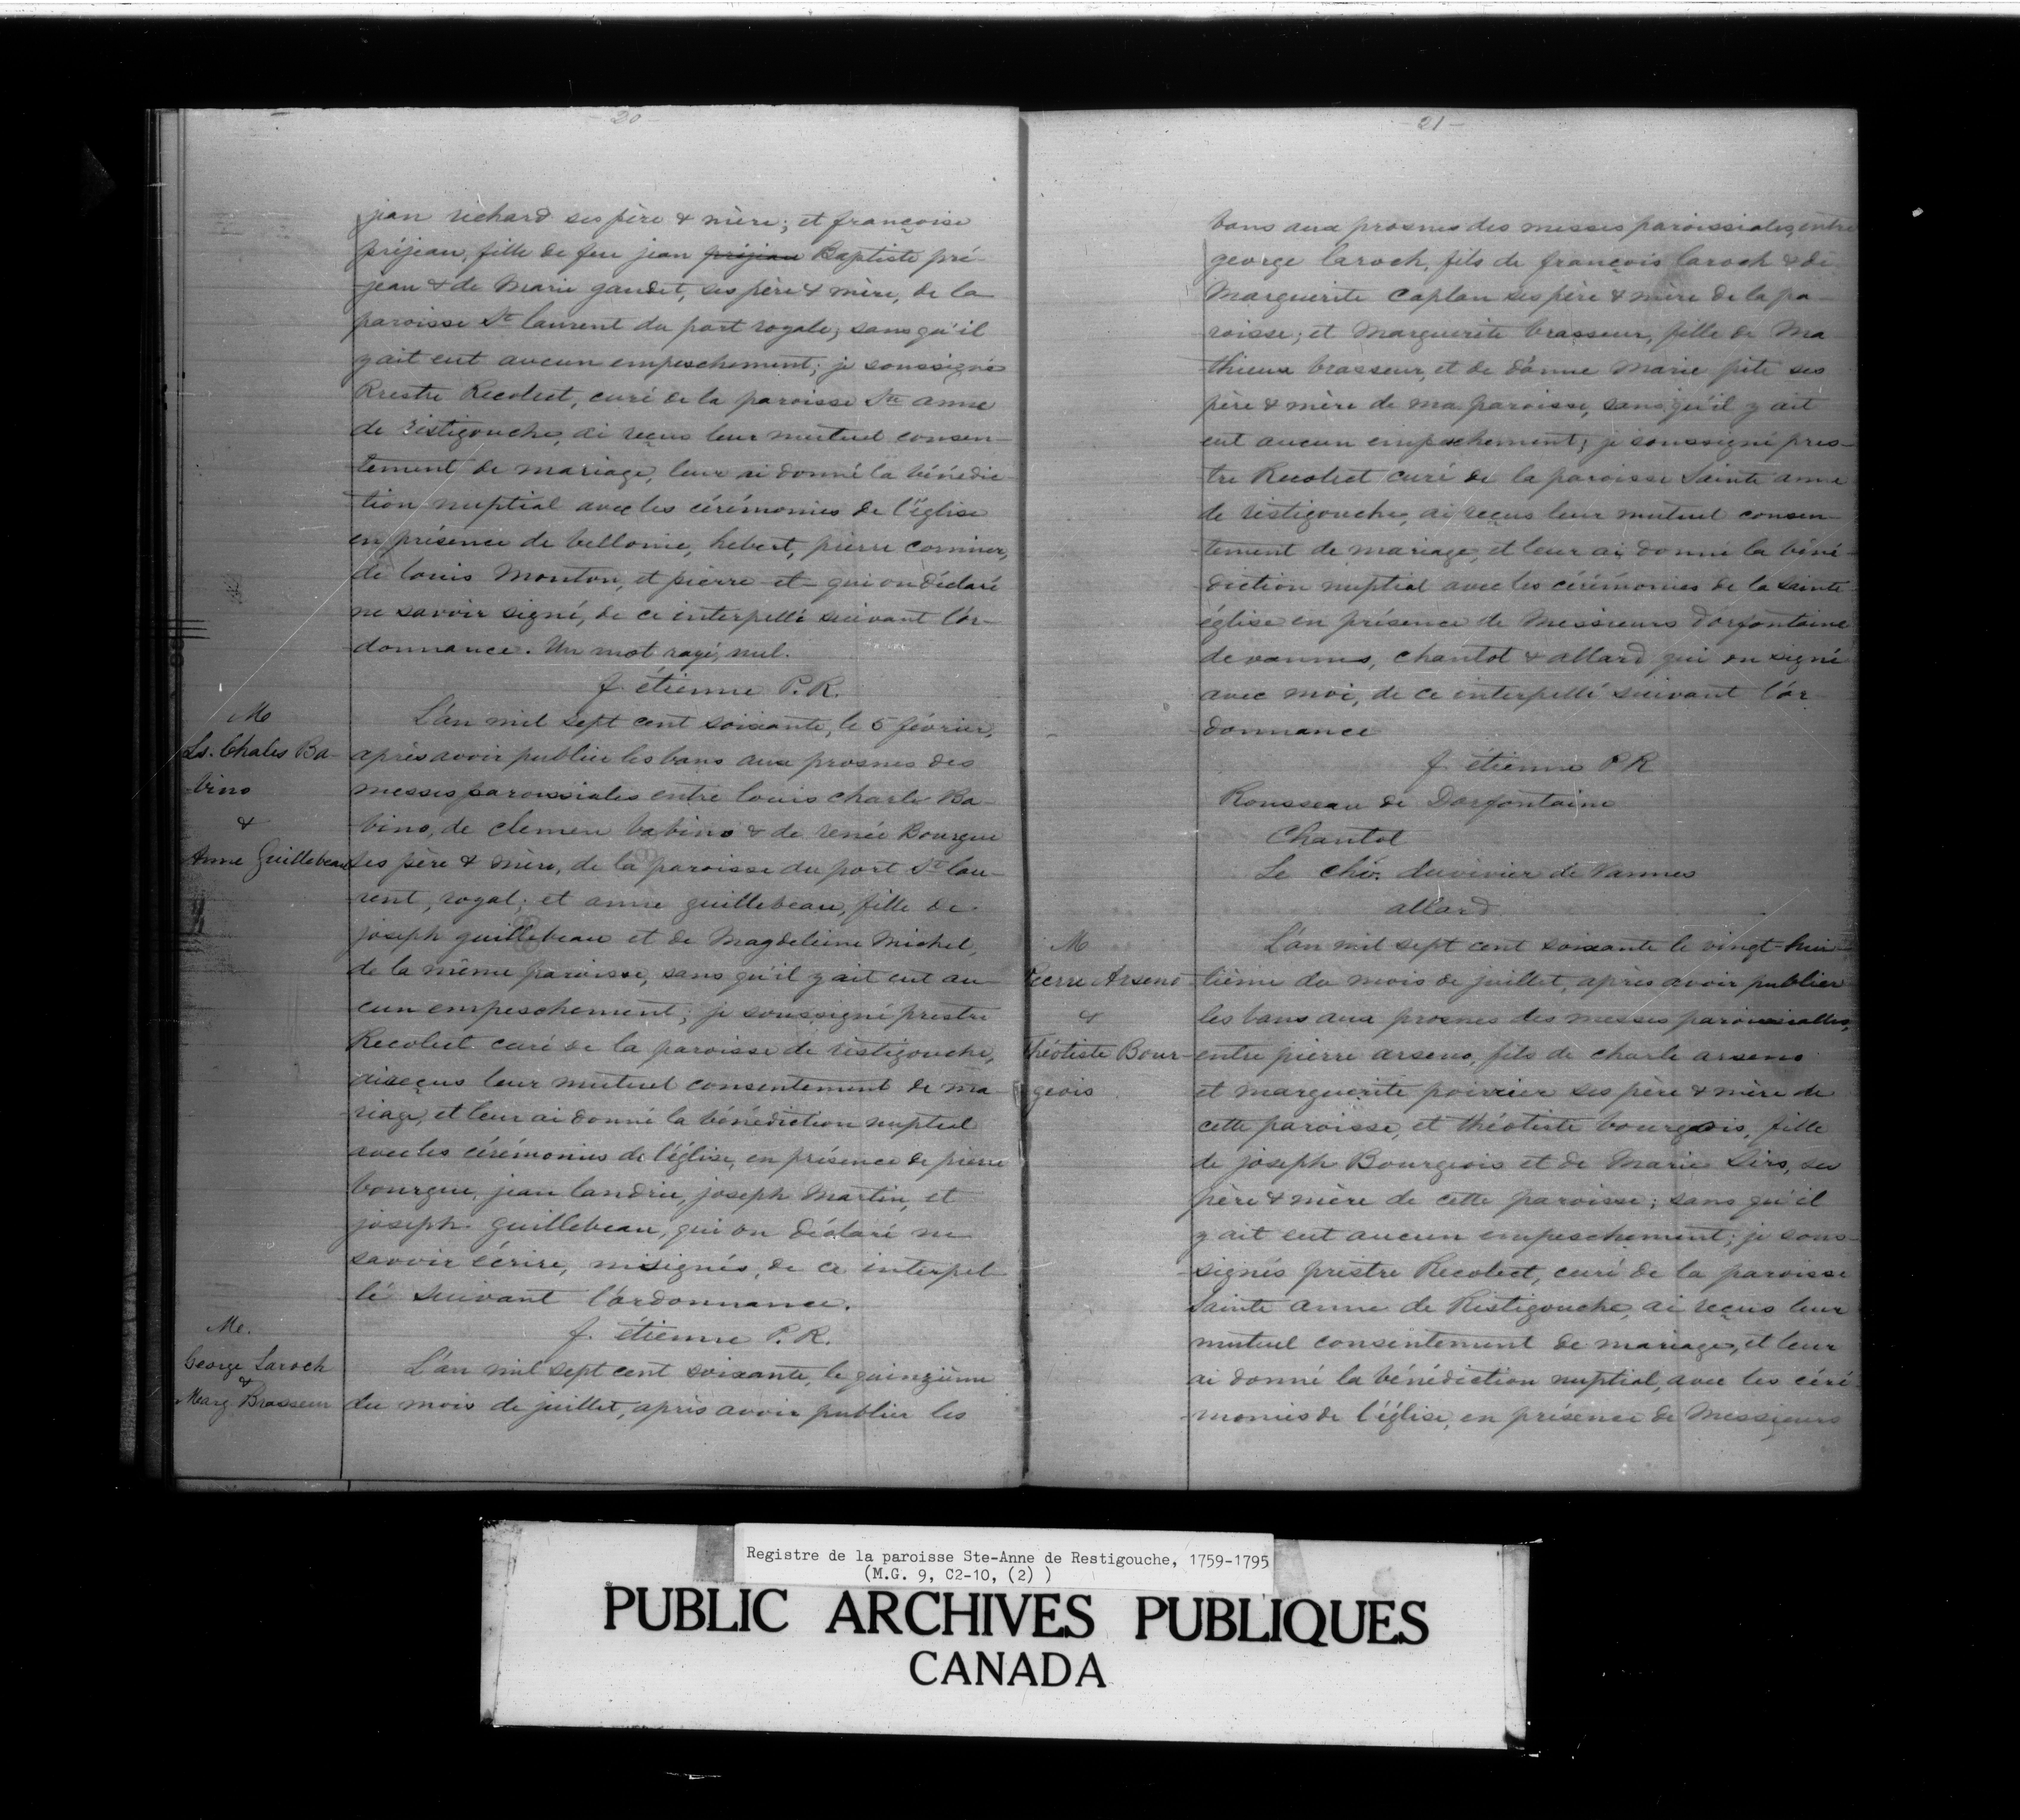 - 20 -
jean richard ses père & mère; et françoise
préjean, fille de feu jean préjean Baptiste pré-
jean & de Marie gaudet, ses père & mère, de la
paroisse St laurent du port royale; sans qu'il
y ait eut aucun empeschement; je soussigné
Prestre Recolect, curé de la paroisse Ste anne
de ristigouche, ai reçus leur mutuel consen-
tement de mariage, leur ai donné la bénédic-
tion nuptial avec les cérémonies de l'église
en présence de bellonie, hebert, pierre
de louis Monton, et pierre et qui on déclaré
ne savoir signé, de ce interpellé suivant l'or-
donnance. Un mot rayé, nul.
f. étienne P.R.
M
Ls. Chales Ba-
bino
&
Anne Guillebeau
L'an mil sept cent soixante, le 5 février,
après avoir publier les bans aux prosnes des
messes paroissiales entre louis charle Ba-
bino, de clemen babino & de renée Bourgue
ses père & mère, de la paroisse du port St lau-
rent, royal; et anne guillebeau, fille de
joseph guillebeau et de Magdeleine Michel,
de la même paroisse, sans qu'il y ait eut au-
cun empeschement; je soussigné prestre
Recolect curé de la paroisse de ristigouche,
ai reçus leur mutuel consentement de ma-
riage, et leur ai donné la bénédiction nuptial
avec les cérémonies de l'église, en présence de pierre
bourgue, jean landrie, joseph Martin, et
joseph guillebeau, qui on déclaré ne
savoir écrire, ni signés, de ce interpel-
lé suivant l'ordonnance.
f. étienne P.R.
Me.
George Laroch
&
Marg. Brasseur
L'an mil sept cent soixante, le quinzième
du mois de juillet, après avoir publier les
- 21 -
bans aux prosnes des messes paroissiales, entre
george laroch, fils de françois laroch & de
Marguerite Caplan ses père & mère de la pa-
roisse; et Marguerite brasseur, fille de Ma-
thieux brasseur, et de d'anne Marie pite ses
père & mère de ma paroisse, sans qu'il y ait
eut aucun empeschement; je soussigné pres-
tre Recolect curé de la paroisse Sainte anne
de ristigouche, ai reçus leur mutuel consen-
tement de mariage, et leur ai donné la béné-
diction nuptial avec les cérémonies de la Sainte
église en présence de Messieurs Dorfontaine
de vannes, chantot & allard qui on signé
avec moi, de ce interpellé suivant l'or-
donnance
f. étienne P R
Rousseau de Dorfontaine
Chantot
Le chev. duvivier de Vannes
allard
M
Pierre Arseno
&
Théotiste Bour-
geois
L'an mil sept cent soixante le vingt-hui-
tième du mois de juillet, après avoir publier
les bans aux prosnes des messes paroissialles,
entre pierre arseno, fils de charle arseno
et marguerite poirier ses père & mère de
cette paroisse, et théotiste bourgeois, fille
de joseph Bourgeois et de Marie Sirs, ses
père & mère de cette paroisse; sans qu'il
y ait eut aucun empeschement; je sous-
signés prestre Recolect, curé de la paroisse
Sainte anne de Ristigouche, ai reçus leur
mutuel consentement de mariage, et leur
ai donné la bénédiction nuptial, avec les céré-
monies de l'église, en présence de Messieurs
Registre de la paroisse Ste-Anne de Restigouche, 1759-1795
(M.G. 9, C2-10, (2) )
PUBLIC ARCHIVES PUBLIQUES
CANADA